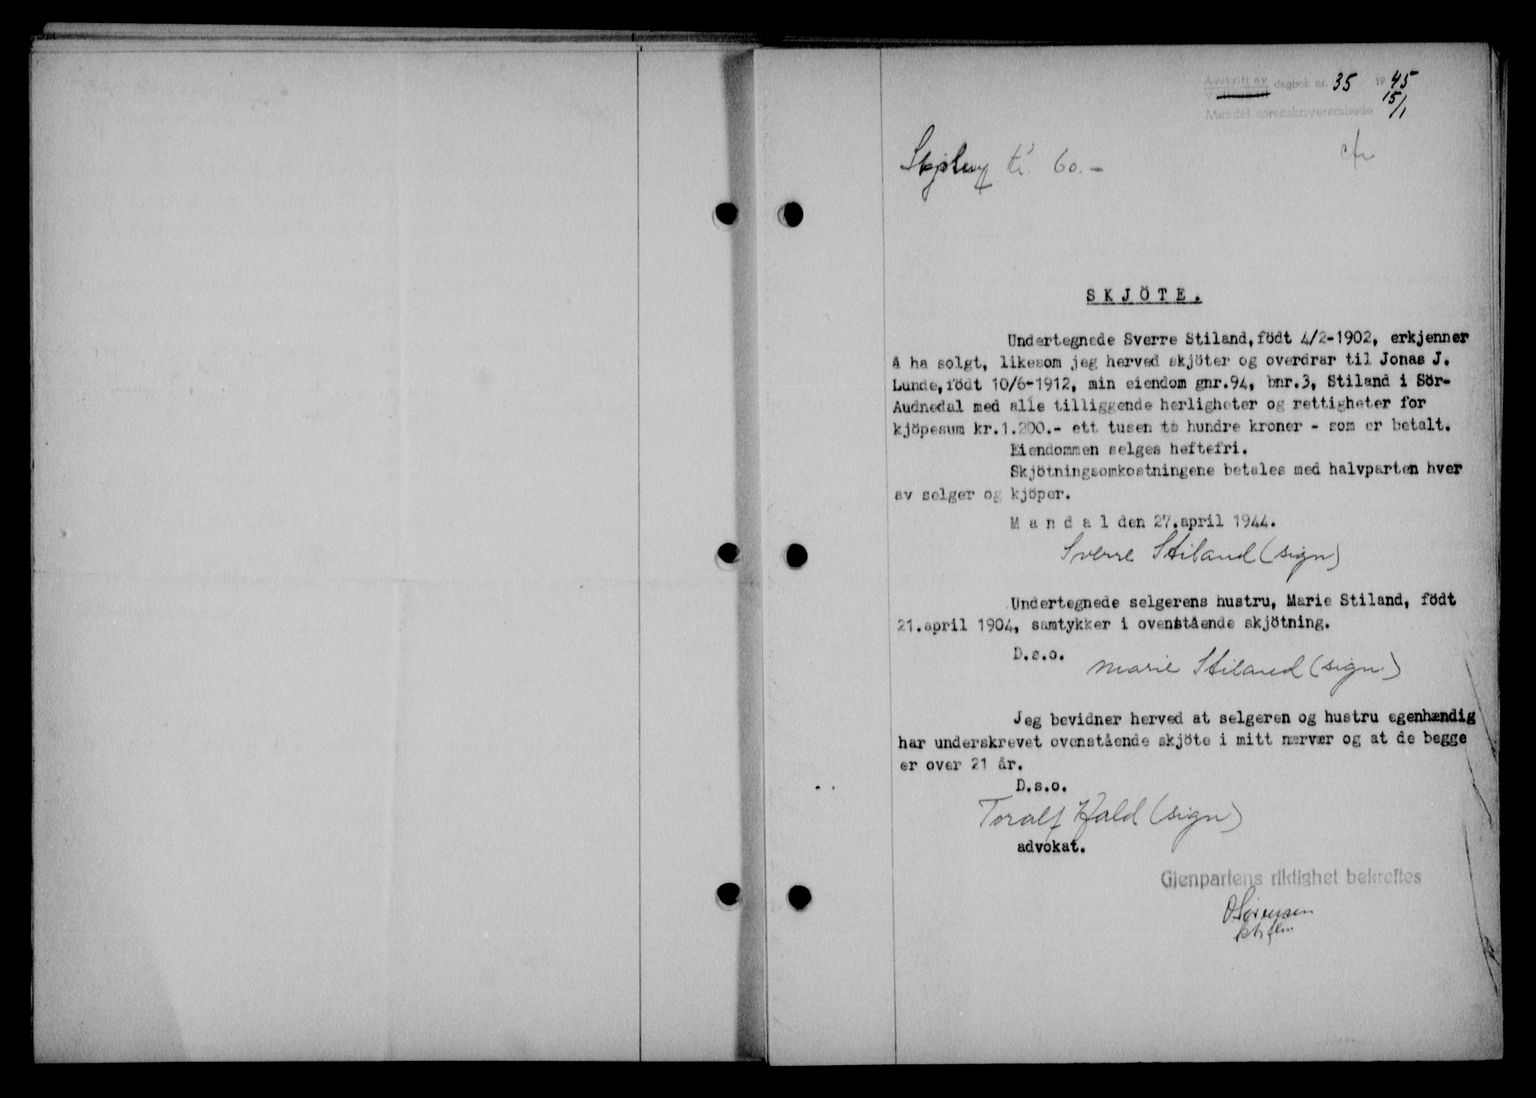 Avskrift av dagbok nr. 35 1945
15/1
Mandal sorenskriverembede
kr. 60.-
SKJÖTE.
Undertegnede Sverre Stiland, födt 4/2-1902, erkjenner
å ha solgt, likesom jeg herved skjöter og overdrar til Jonas J.
Lunde, födt 10/6-1912, min eiendom gnr.94, bnr.3, Stiland i Sör-
Audnedal med alle tilliggende herligheter og rettigheter for
kjöpesum kr.1.200.- ett tusen to hundre kroner - som er betalt.
Eiendommen selges heftefri.
Skjötningsomkostningene betales med halvparten hver
av selger og kjöper.
M a n d a l den 27.april 1944.
Sverre Stiland (sign)
Undertegnede selgerens hustru, Marie Stiland, födt
21.april 1904, samtykker i ovenstående skjötning.
D.s.o.
Marie Stiland (sign.)
Jeg bevidner herved at selgeren og hustru egenhændig
har underskrevet ovenstående skjöte i mitt nærvær og at de begge
er over 21 år.
D.s.o.
Toralf Hald (sign)
advokat.
Gjenpartens riktighet bekreftes
O Sörensen